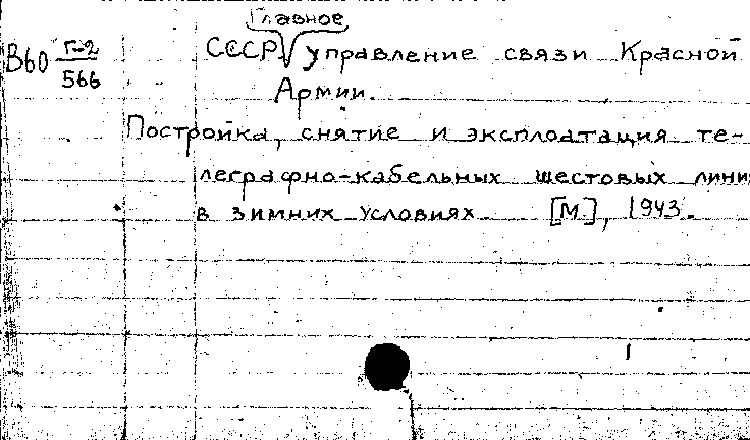 Главное
В60 Г-2/566 СССР управление связи Красной
Армии.
Постройка, снятие и эксплоатация те-
леграфно-кабельных шестовых лини
в зимних условиях [М.], 1943.